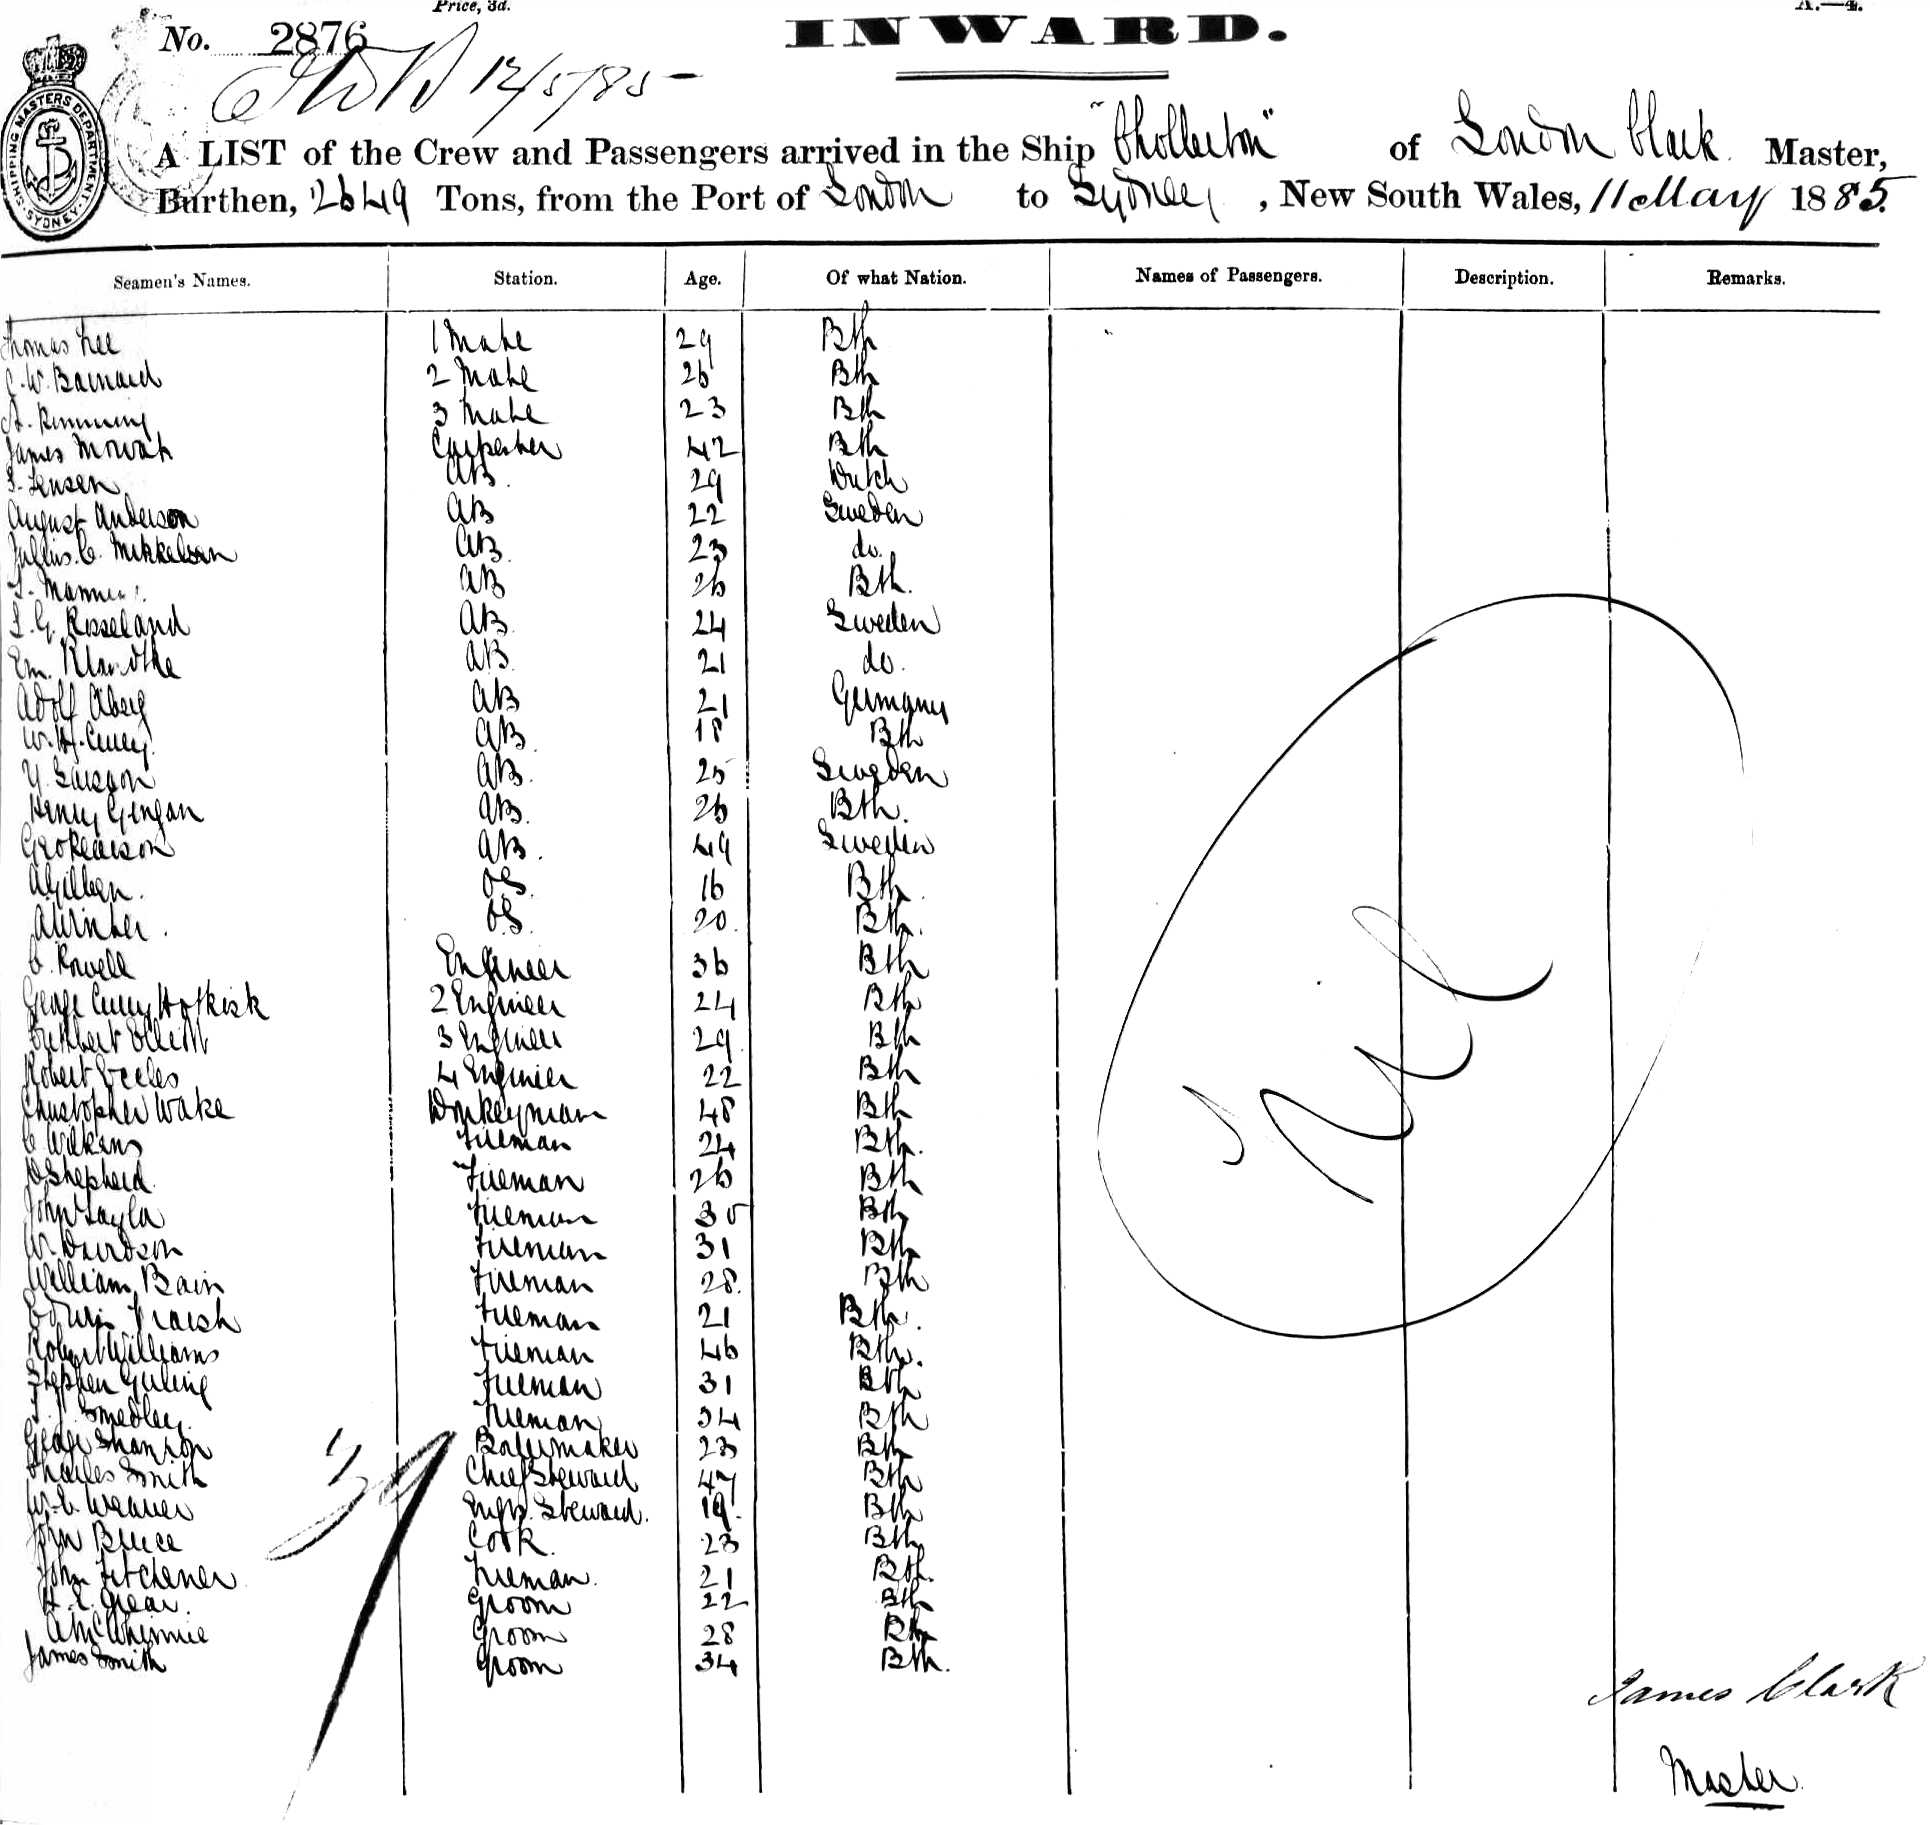 Price, 3d.
A.—4.
No. 2876
INWARD.
12/5/85
SHIPPING MASTERS DEPARTMENT SYDNEY
A LIST of the Crew and Passengers arrived in the Ship "Chollerton" of London Clark Master,
Burthen, 2649 Tons, from the Port of London to Sydney, New South Wales, 11 May 1885.
Seamen's Names. Station. Age. Of what Nation. Names of Passengers. Description. Remarks.
Thomas Lee 1 Mate 29 Bth
C. W. Barnard 2 Mate 26 Bth
3 Mate 23 Bth
James Mowat Carpenter 42 Bth
Jensen AB 29 Dutch
August Anderson AB 22 Sweden
Julius C. Mikkelsen AB 23 do.
AB 26 Bth.
Rosseland AB 24 Sweden
Em. AB 21 do.
Adolf Aberg AB 21 Germany
W. H. Curry AB 18 Bth
AB 25 Sweden
Henry Gingan AB 26 Bth.
AB 49 Sweden
OS 16 Bth.
A Winter. OS 20 Bth.
C. Rowell Engineer 36 Bth
George Curry Hotkisk 2 Engineer 24 Bth
Cuthbert Elliott 3 Engineer 29 Bth
Robert Eccles 4 Engineer 22 Bth
Christopher Wake Donkeyman 48 Bth
C Wilkins Fireman 24 Bth.
Shepherd Fireman 26 Bth
John Taylor Fireman 35 Bth
W. Davidson Fireman 31 Bth
William Bain Fireman 28 Bth
Edwin Fireman 21 Bth.
Robert Williams Fireman 46 Bth.
Stephen Fireman 31 Bth
Smedley Fireman 34 Bth
George Shannon Boilermaker 23 Bth
Charles Smith Chief Steward 47 Bth
W. C. Weaver Engrs. Steward. 19 Bth
John Bruce Cook 23 Bth
John Fitchener Fireman 21 Bth
H. E. Grear. Groom 22 Bth
A McWhinnie Groom 28 Bth
James Smith Groom 34 Bth.
39
Nil
James Clark
Master